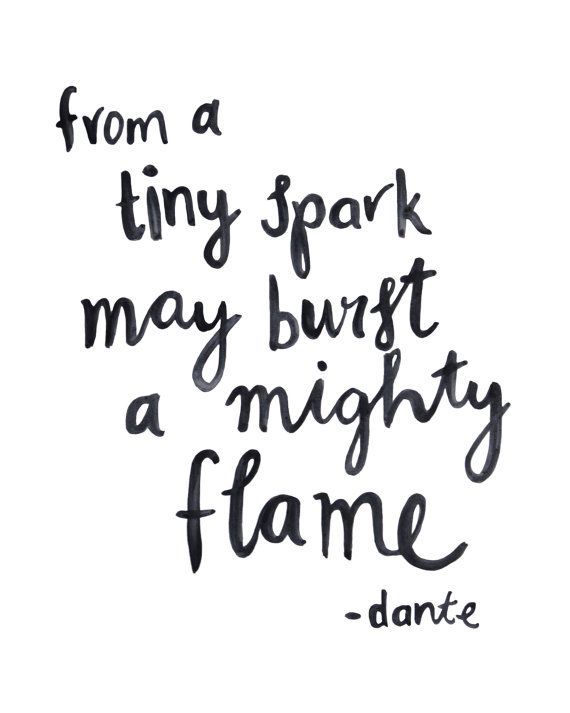 from a
tiny spark
may burst
a mighty
flame
-dante